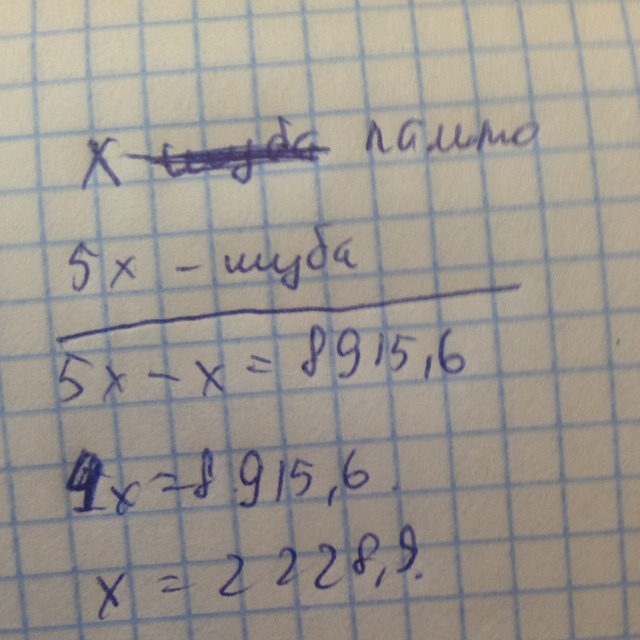 x - пальто
5x - шуба
5x - x = 8915,6
4x = 8915,6
x = 2228,9.